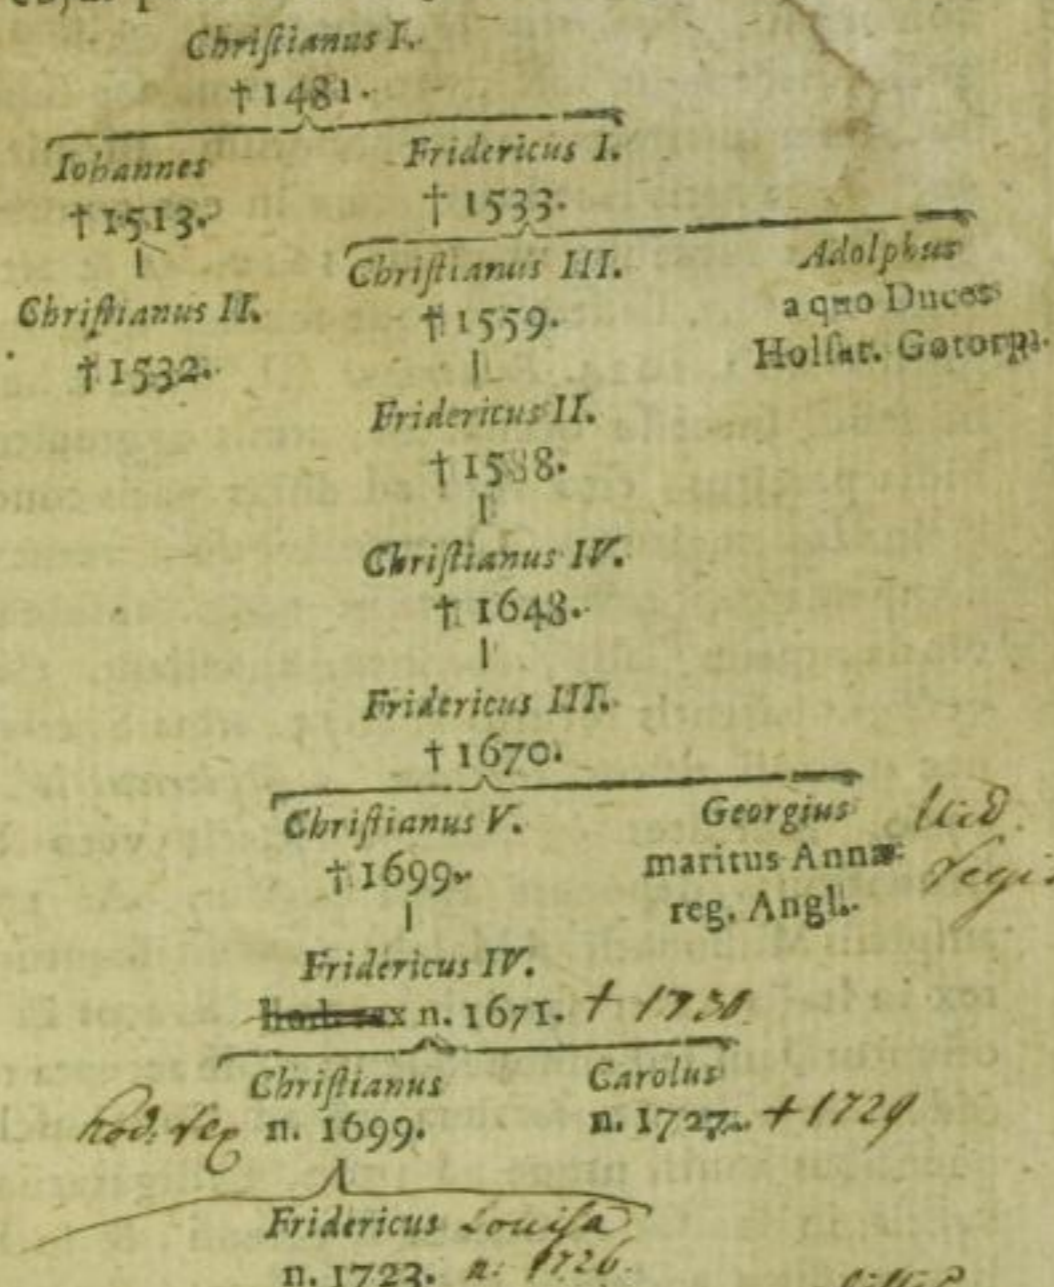 Christianus I.
† 1481.
Iohannes
† 1513.
Fridericus I.
† 1533.
Christianus II.
† 1532.
Christianus III.
† 1559.
Adolphus
a quo Duces
Holsat. Gotorp.
Fridericus II.
† 1588.
Christianus IV.
† 1648.
Fridericus III.
† 1670.
Christianus V.
† 1699.
Georgius
maritus Annæ
reg. Angl.
Fridericus IV.
n. 1671. † 1730
Christianus
hod: rex n. 1699.
Carolus
n. 1727. † 1729
Fridericus Louisa
n. 1723. n: 1726.